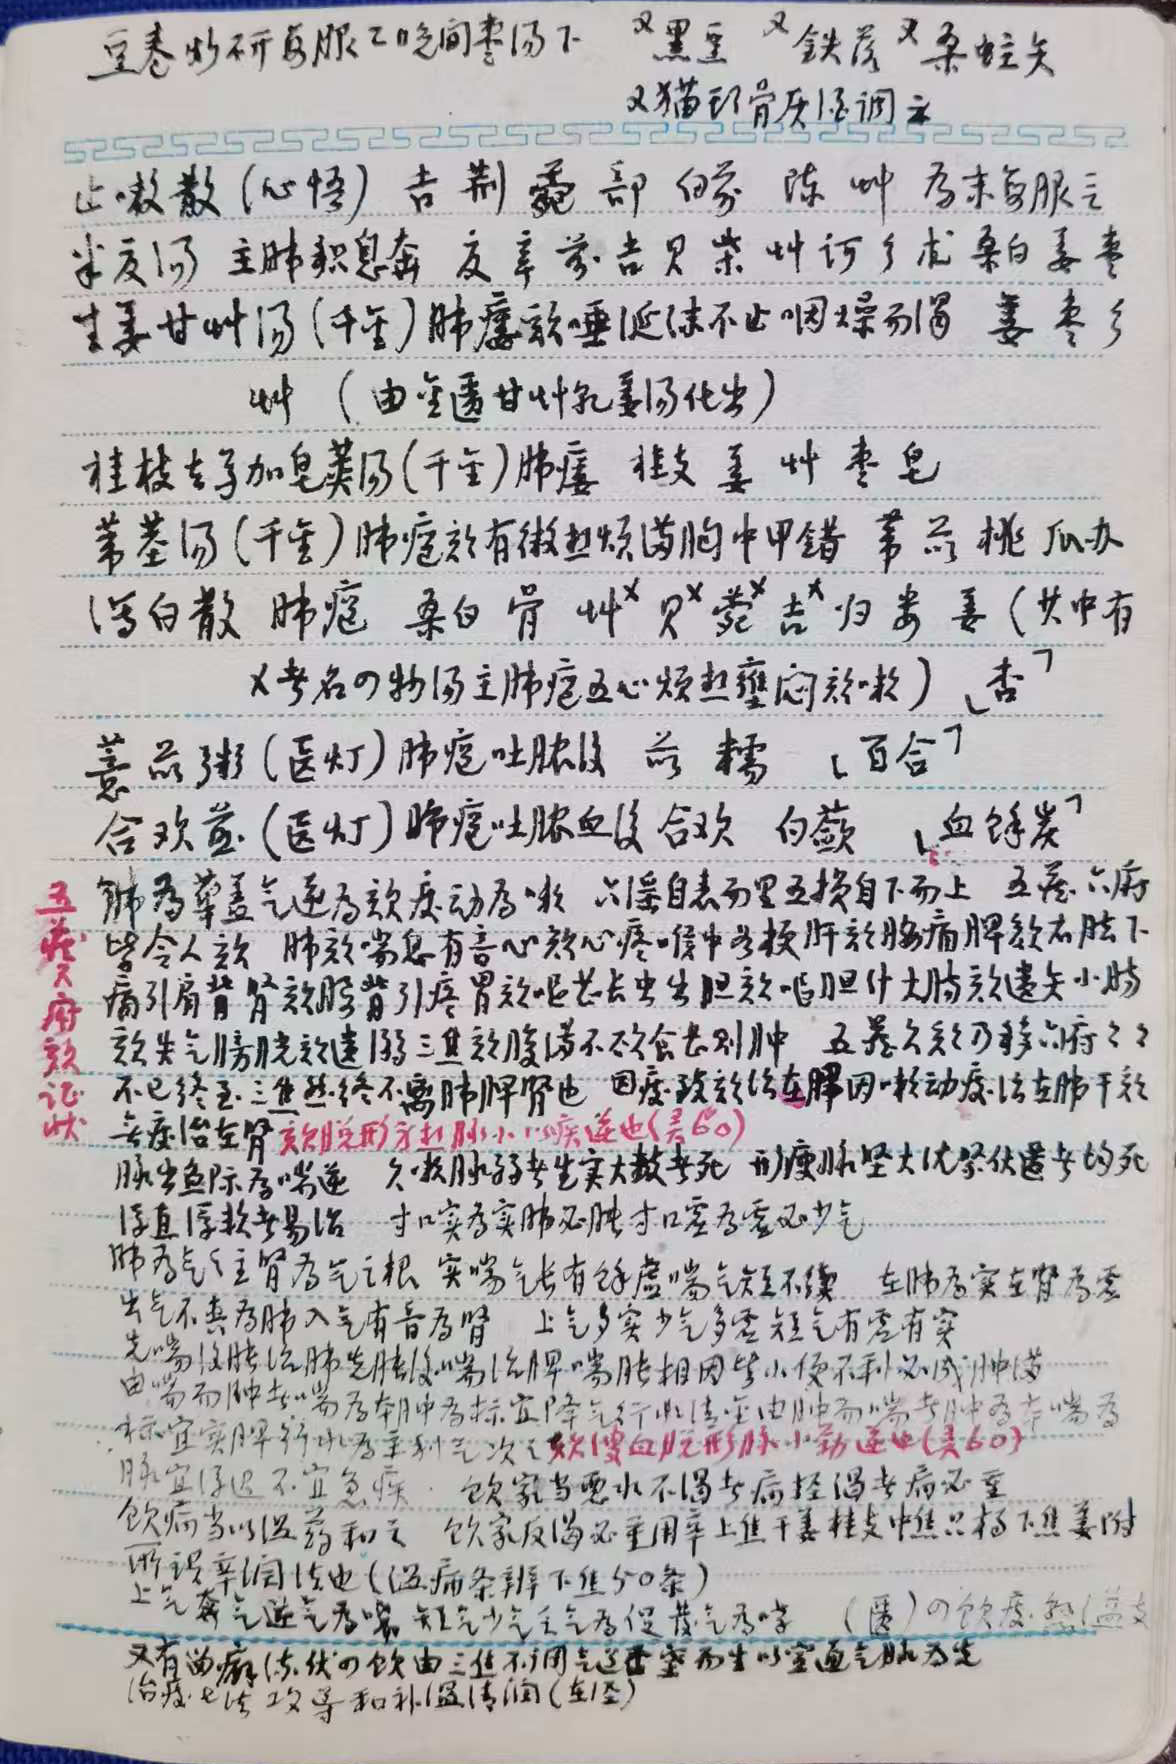 豆卷炒研每服乙晚间枣汤下 又黑豆 又铁落 又桑蛀矢
又猫头骨灰酒调
止嗽散(心悟) 吉 荆 菀 部 白前 陈 艸 为末每服三
半夏汤 主肺积息奔 夏 辛 前 吉 贝 柴 艸 诃 桑白 姜 枣
生姜甘艸汤(千金)肺痿咳唾涎沫不止咽燥而渴 姜 枣
艸 (由金匮甘艸乾姜汤化出)
桂枝去芍加皂荚汤(千金)肺痿 桂支 姜 艸 枣 皂
苇茎汤(千金)肺疮咳有微热烦满胸中甲错 苇 苡 桃 瓜办
泻白散 肺疮 桑白 骨 艸x 贝x 菀x 吉x 归 姜(其中有
x者名四物汤主肺疮五心烦热壅闷咳嗽)「杏」
薏苡粥(医灯)肺疮吐脓后 苡 糯 「百合」
合欢益(医灯)肺疮吐脓血后 合欢 白蔹 「血馀炭」
肺为华盖气逆为咳痰动为嗽 六淫自表而里五损自下而上 五脏六府
皆令人咳 肺咳喘息有音心咳心疼喉中如梗肝咳胁痛脾咳右胠下
痛引肩背肾咳腰背引疼胃咳呕甚长虫出胆咳呕胆汁大肠咳遗矢小肠
咳失气膀胱咳遗溺三焦咳腹满不欲食甚则肿 五脏久咳乃移六府々々
不已终至三焦然终不离肺脾肾也 因痰致咳治在脾因嗽动痰治在肺干咳
无痰治在肾 咳脱形身热脉小以疾逆也(灵60)
五脏六府咳证状
脉出鱼际为喘逆 久嗽脉弱者生实大数者死 形瘦脉坚大沉坚伏匿者均死
浮直浮软者易治 寸口实为实肺必胀寸口虚为虚必少气
肺为气之主肾为气之根 实喘气长有馀虚喘气短不续 在肺为实在肾为虚
出气不爽为肺入气有音为肾 上气多实少气多虚短气有虚有实
先喘后胀治肺先胀后喘治脾喘胀相因皆小便不利必成肿满
由喘而肿者喘为本肿为标宜降气行水清金由肿而喘者肿为本喘为
标宜实脾行水为主利气次之 咳溲血脱形脉小劲逆也(灵60)
脉宜浮迟不宜急疾 饮家当恶水不渴者病轻渴者病必重
饮病当以温药和之 饮家反渴必重用辛上焦干姜桂支中焦只桔下焦姜附
所谓辛润法也(温病条辨下焦50条)
上气奔气逆气为喘 短气少气乏气为促 (匮)四饮痰 悬 溢支
又有留癖流伏四饮由三焦不调气道否塞而生以宣通气脉为先
治痰七法 攻导和补温清润(在泾)